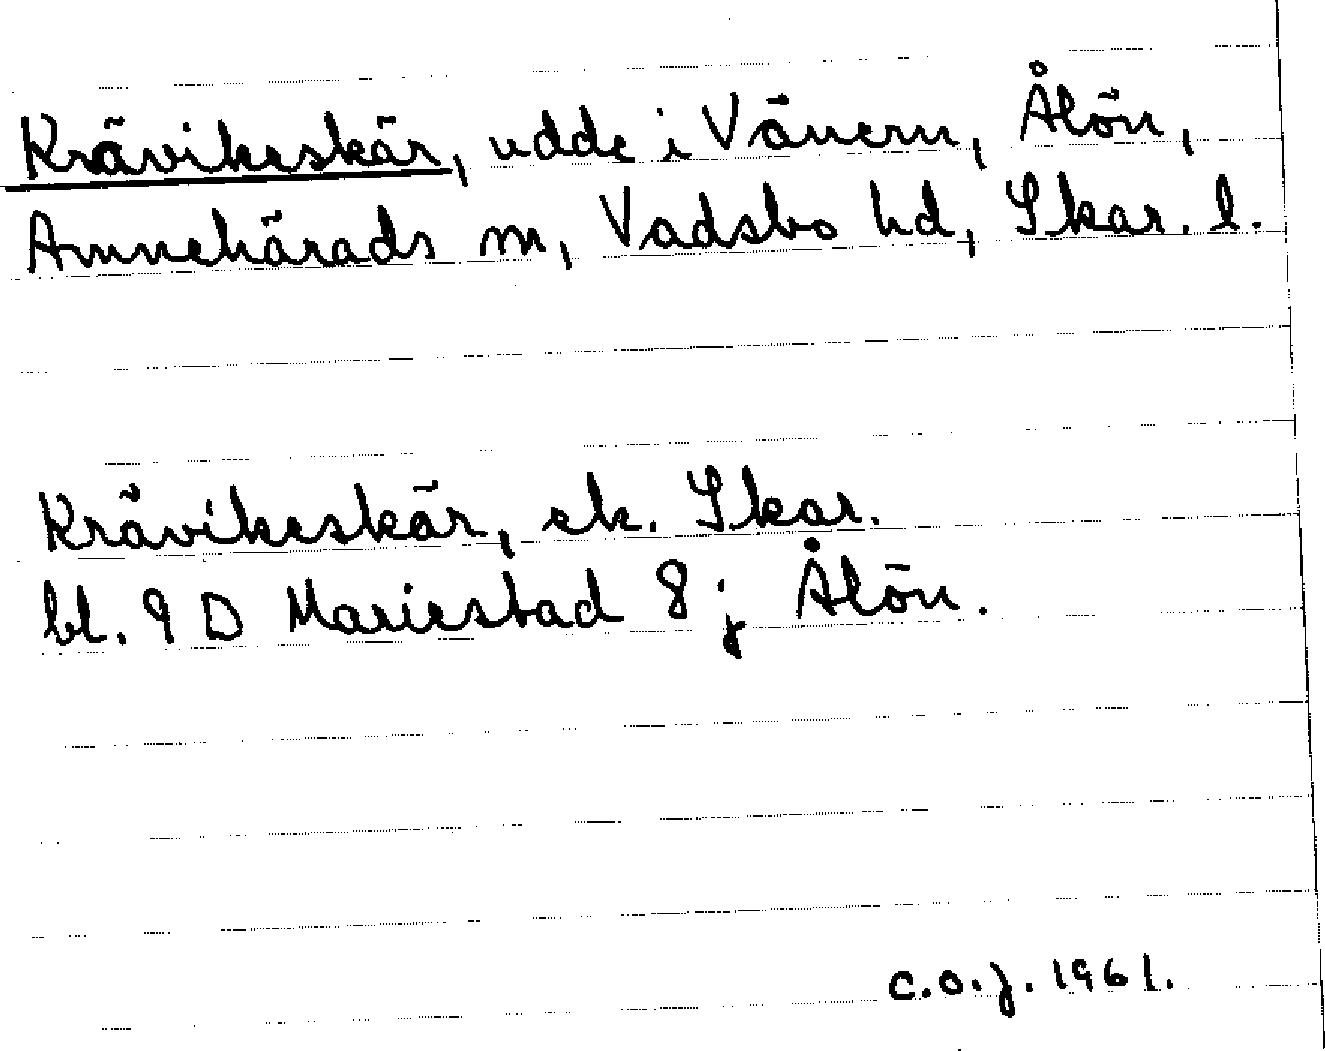 Krävikeskär, udde i Vänern, Ålön,
Amnehärads sn, Vadsbo hd, Skar. l.
Krävikeskär, ek. Skar.
bl. 9 D Mariestad 8 j Ålön.
C.O.J. 1961.